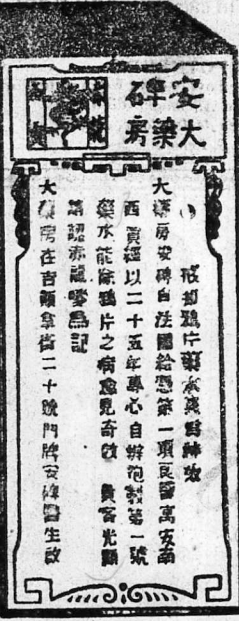 安碑
大藥房
戒却鴉片藥水異常神效
大藥房安碑自法國給憑第一項良醫寓安南
西貢經以二十五年專心自辦泡製第一號
藥水能除鴉片之病癮見奇效 貴客光顧
請認赤龍嘜爲記
大藥房在吉頞拿街二十號門牌安碑醫生啟